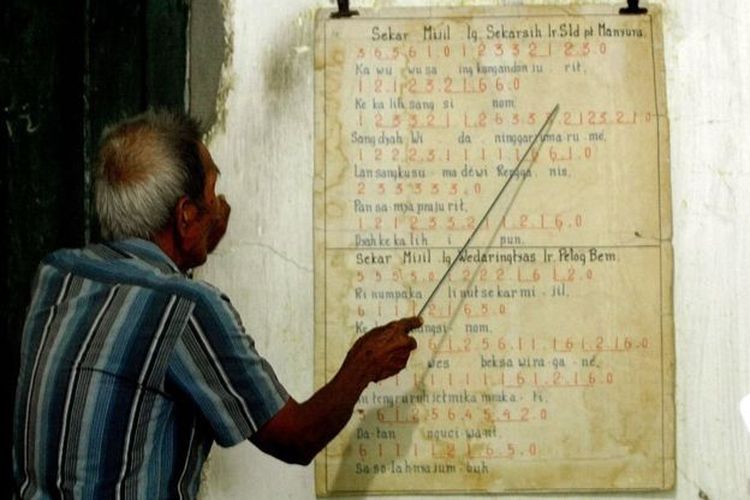 Sekar Mijil lg. Sekarsih lr. Sld pt Manyura.
3 6 5 6 1 0 1 2 3 3 2 1 2 3 0
Ka wu wu sa ing kangandon ju rit,
1 2 1 2 3 2 1 6 6 0
Ke ka lih sang si nom,
Sang dyah Wi da ninggar uma ru me,
1 2 2 2 3 1 1 1 1 1 6 6 1 0
Lan sang kusu ma dewi Rengga nis,
2 3 3 3 3 3 0
Pan sa mya praju rit,
1 2 1 2 3 3 2 1 1 2 1 6 0
Dyah ke ka lih i pun.
Sekar Mijil lg Wedaringtyas lr. Pelog Bem.
5 5 5 3 0 2 2 2 1 6 1 2 0
Ri numpaka li nut sekar mi jil,
6 1 1 2 1 6 5 0
Ke angsi nom,
6 1 2 5 6 1 1 1 6 1 2 1 6 0
wes beksa wira ga ne,
1 1 1 1 1 1 1 6 1 1 2 1 6 0
ti,
6 1 2 5 6 4 5 4 2 0
Da tan nguci wani,
5 1 1 1 1 2 1 6 5 0
Sa so lah